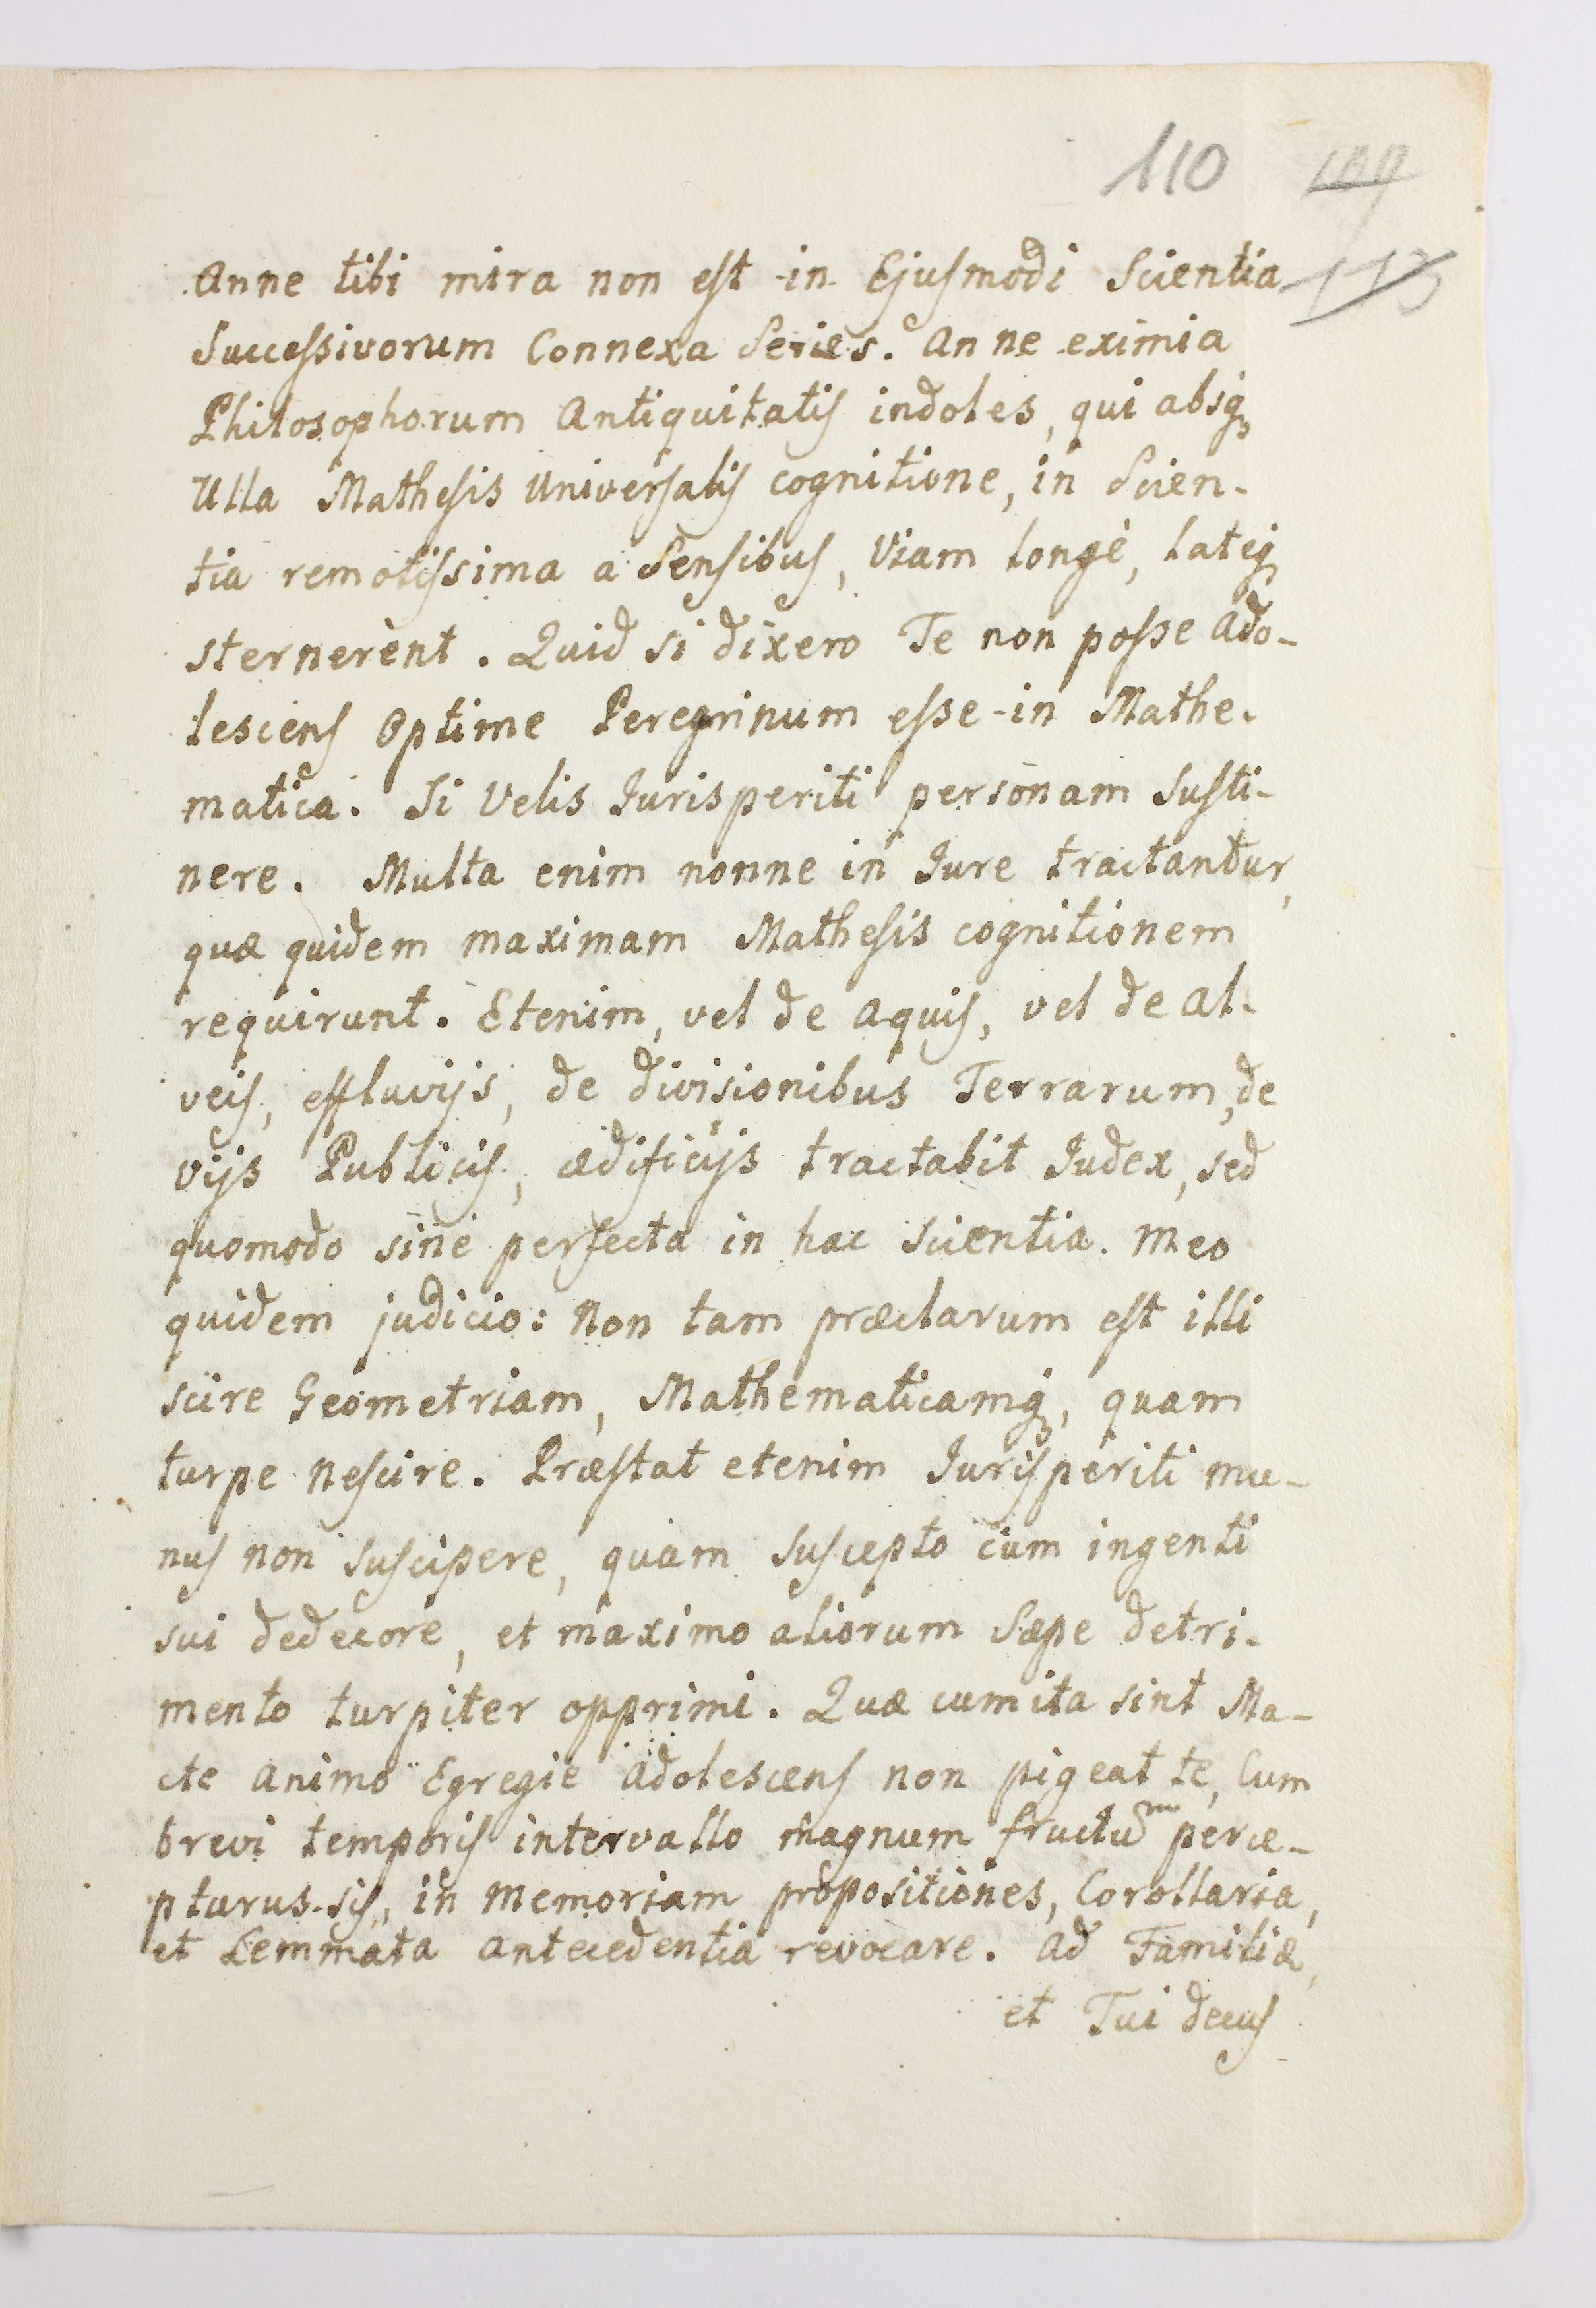 110 109
113
Anne tibi mira non est in Ejusmodi Scientia
Successivorum Connexa Series. Anne eximia
Philosophorum Antiquitatis indoles, qui absq
Ulla Mathesis Universalis cognitione, in Scien-
tia remotissima a Sensibus, Viam longè, lateq
sternerent. Quid si dixero Te non posse Ado-
lescens Optime Peregrinum esse in Mathe-
matica. Si Velis Jurisperiti personam Susti-
nere. Multa enim nonne in Jure tractantur,
quæ quidem maximam Mathesis cognitionem
requirunt. Etenim, vel de aquis, vel de al-
veis, effluvijs, de divisionibus Terrarum, de
vijs Publicis, ædificijs tractabit Judex, sed
quomodo sine perfecta in hac scientia. Meo
quidem judicio: Non tam præclarum est illi
scire Geometriam, Mathematicamq, quam
turpe Nescire. Præstat etenim Jurisperiti mu-
nus non suscipere, quam suscepto cum ingenti
sui dedecore, et maximo aliorum Sæpe detri-
mento turpiter opprimi. Quæ cum ita sint Ma-
cte animo Egregie adolescens non pigeat te, Cum
brevi temporis intervallo magnum fructum perce-
pturus sis, in Memoriam propositiones, Corollaria,
et Lemmata antecedentia revocare. Ad Familiæ,
et Tui decus